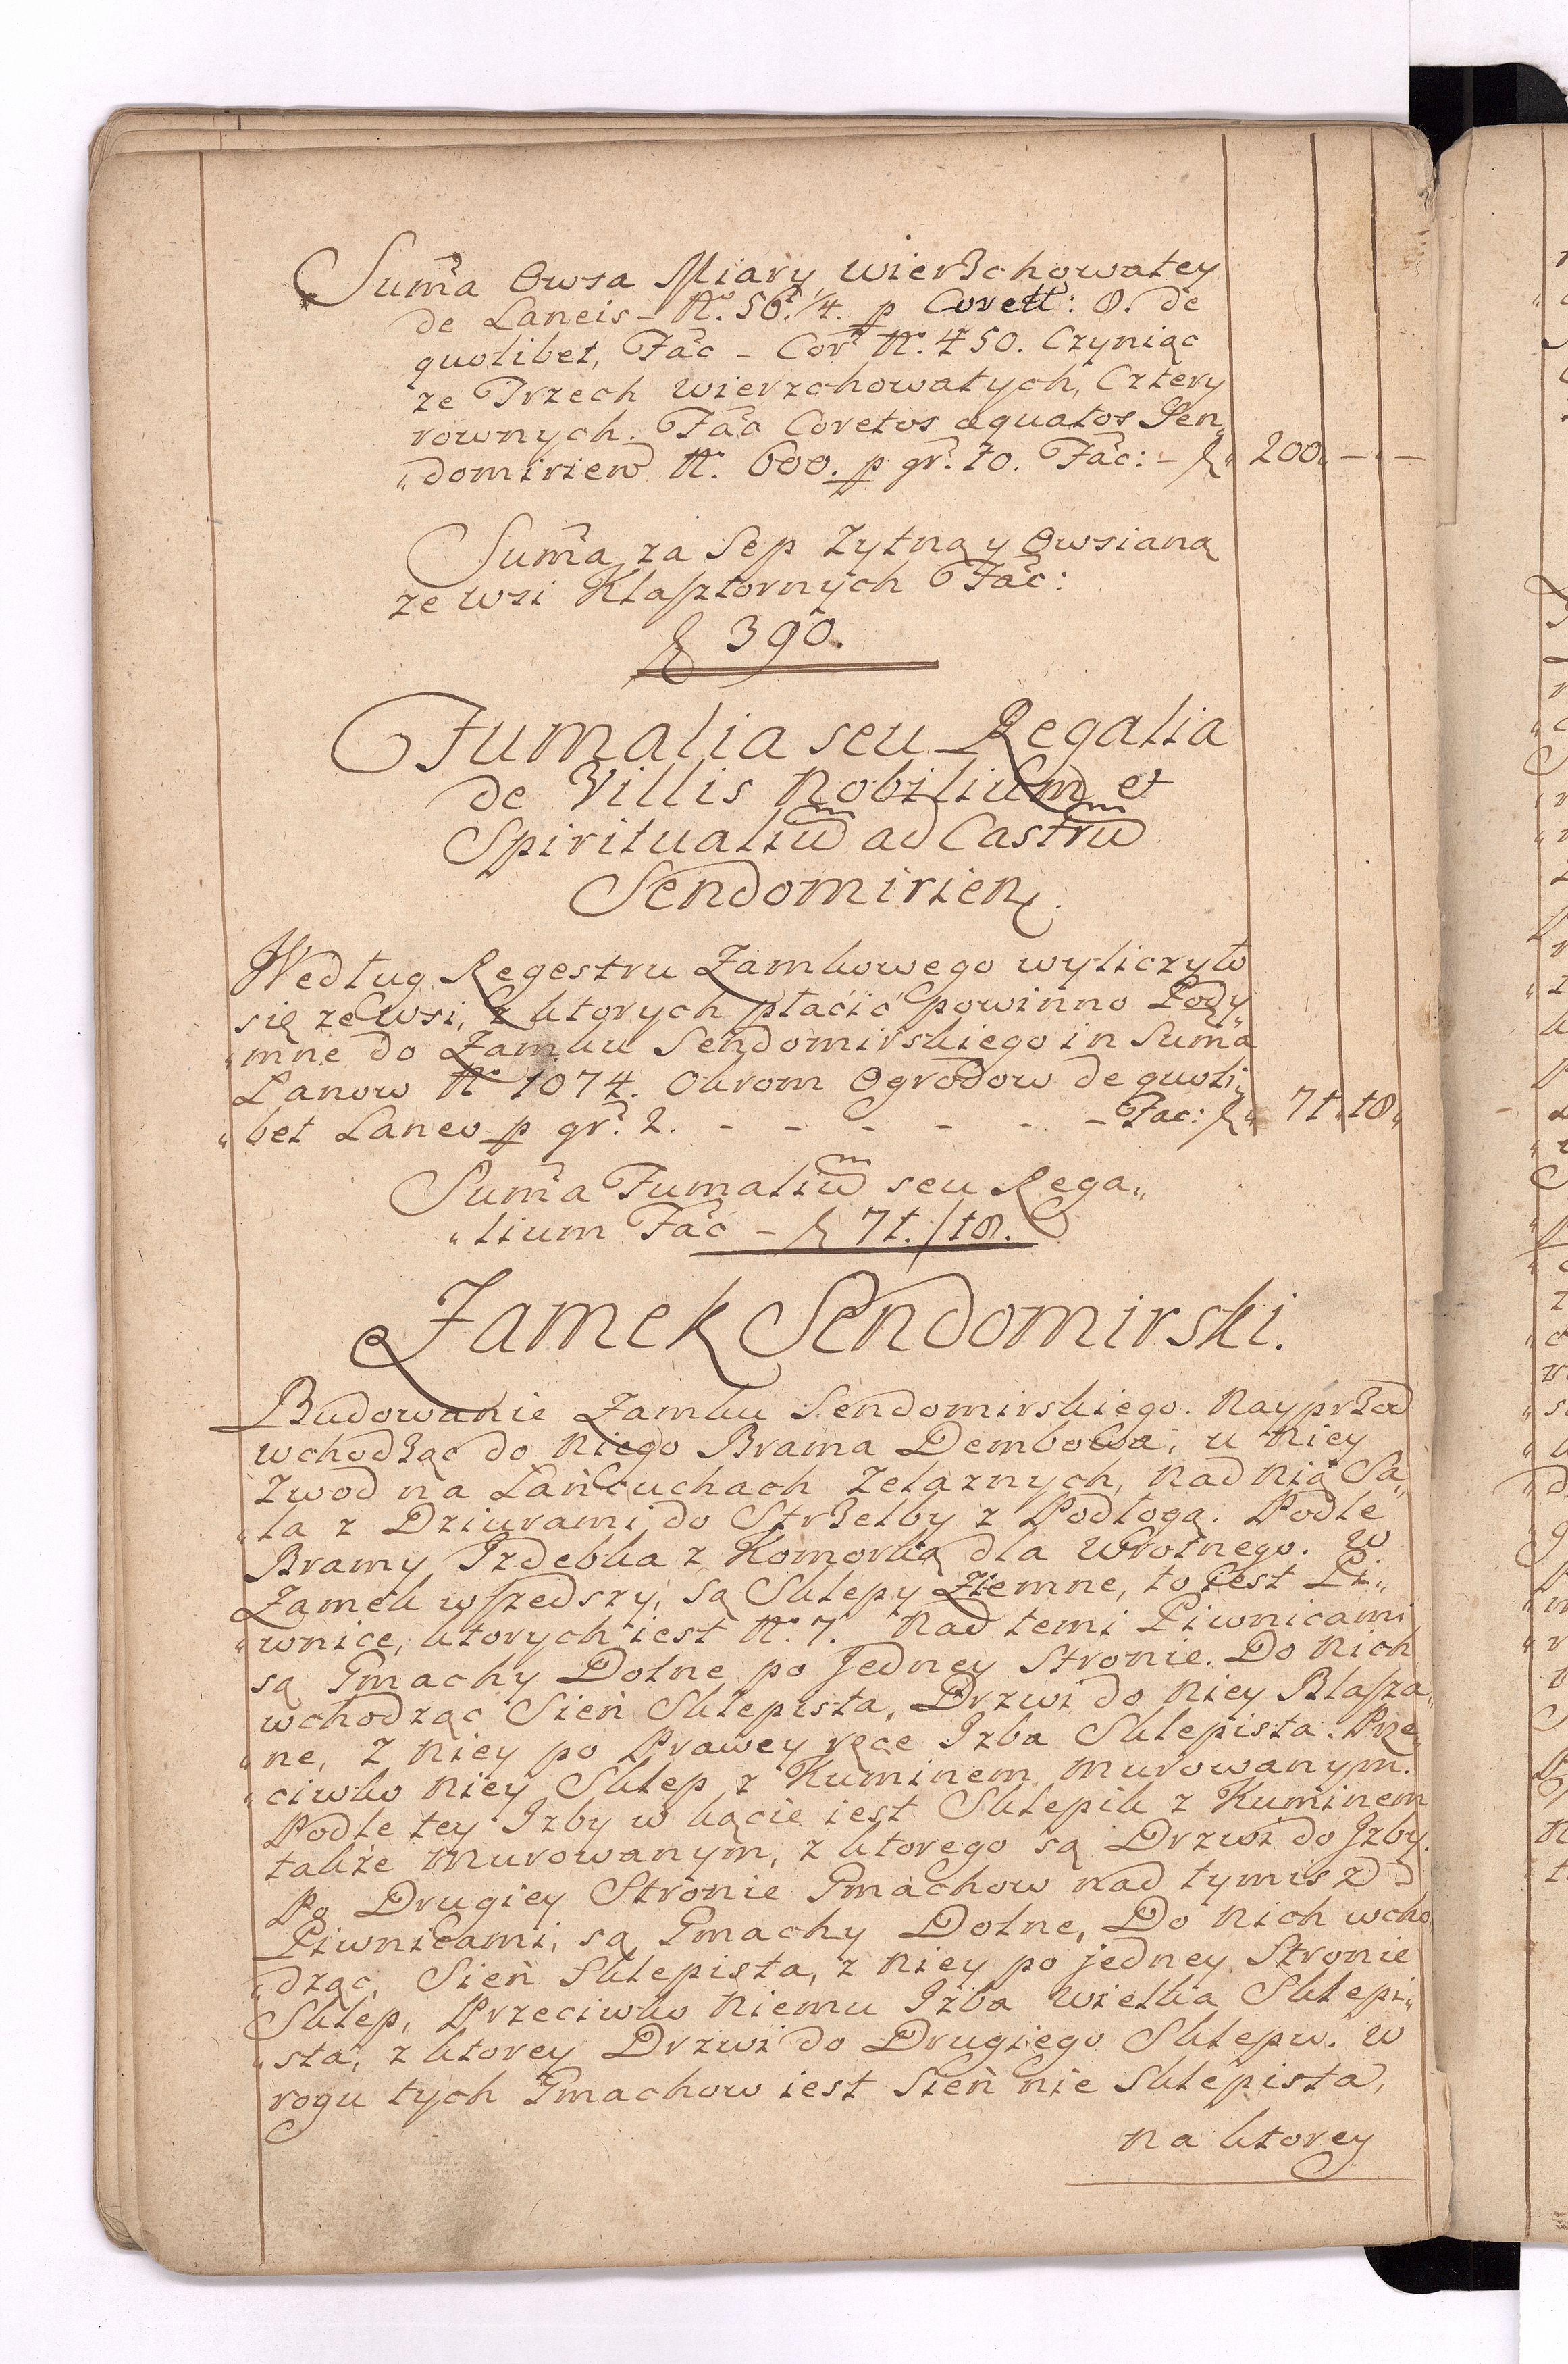 Suma Owsa Miary wierzchowatey
de Laneis - No. 56. 1/4. p Corett: 8. de
quolibet, Fac - Cor No. 450. Czyniąc
ze Trzech wierzchowatych, Cztery
rownych. Fac Coretos æquatos Sen„
„domirien No. 600. p gr. 10. Fac: - f„ 200. - -
Suma za Sep Zytną y Owsianą
ze wsi Klasztornych Fac:
f 390.
Fumalia seu Regalia
de Villis Nobilium et
Spiritualium ad Castrum
Sendomirien.
Według Regestru Zamkowego wyliczyło
się ze wsi, z ktorych płacić powinno Pody„
„mne do Zamku Sendomirskiego in Suma
Lanow No 1074. Okrom Ogrodow de quoli„
„bet Laneo p gr. 2. - - - - - - Fac: f„ 71. 18„
Suma Fumalium seu Rega„
„lium Fac - f 71./18.
Zamek Sendomirski.
Budowanie Zamku Sendomirskiego. Nayprzod
wchodząc do Niego Brama Dembowa, u Niey
Zwod na Lańcuchach Zelaznych, Nad Nią Sa„
„la z Dziurami do Strzelby z Podłogą. Podle
Bramy Izdebka z Komorką dla Wrotnego. W
Zamek wszedszy, są Sklepy Ziemne, to iest Pi„
„wnice, ktorych iest No. 7. Nad temi Piwnicami
są Gmachy Dolne po Jedney Stronie. Do Nich
wchodząc Sień Sklepista, Drzwi do Niey Blasza„
„ne, z Niey po Prawey ręce Izba Sklepista. Prze„
„ciwko Niey Sklep z Kuminem Murowanym.
Podle tey Izby w kącie iest Sklepik z Kuminem
także Murowanym, z ktorego są Drzwi do Izby.
Po Drugiey Stronie Gmachow nad tymisz
Piwnicami, są Gmachy Dolne, Do Nich wcho
„dząc, Sień Sklepista, z Niey po jedney Stronie
Sklep, Przeciwko Niemu Izba Wielka Sklepi„
„sta, z ktorey Drzwi do Drugiego Sklepu. W
rogu tych Gmachow iest Sień nie Sklepista,
na ktorey